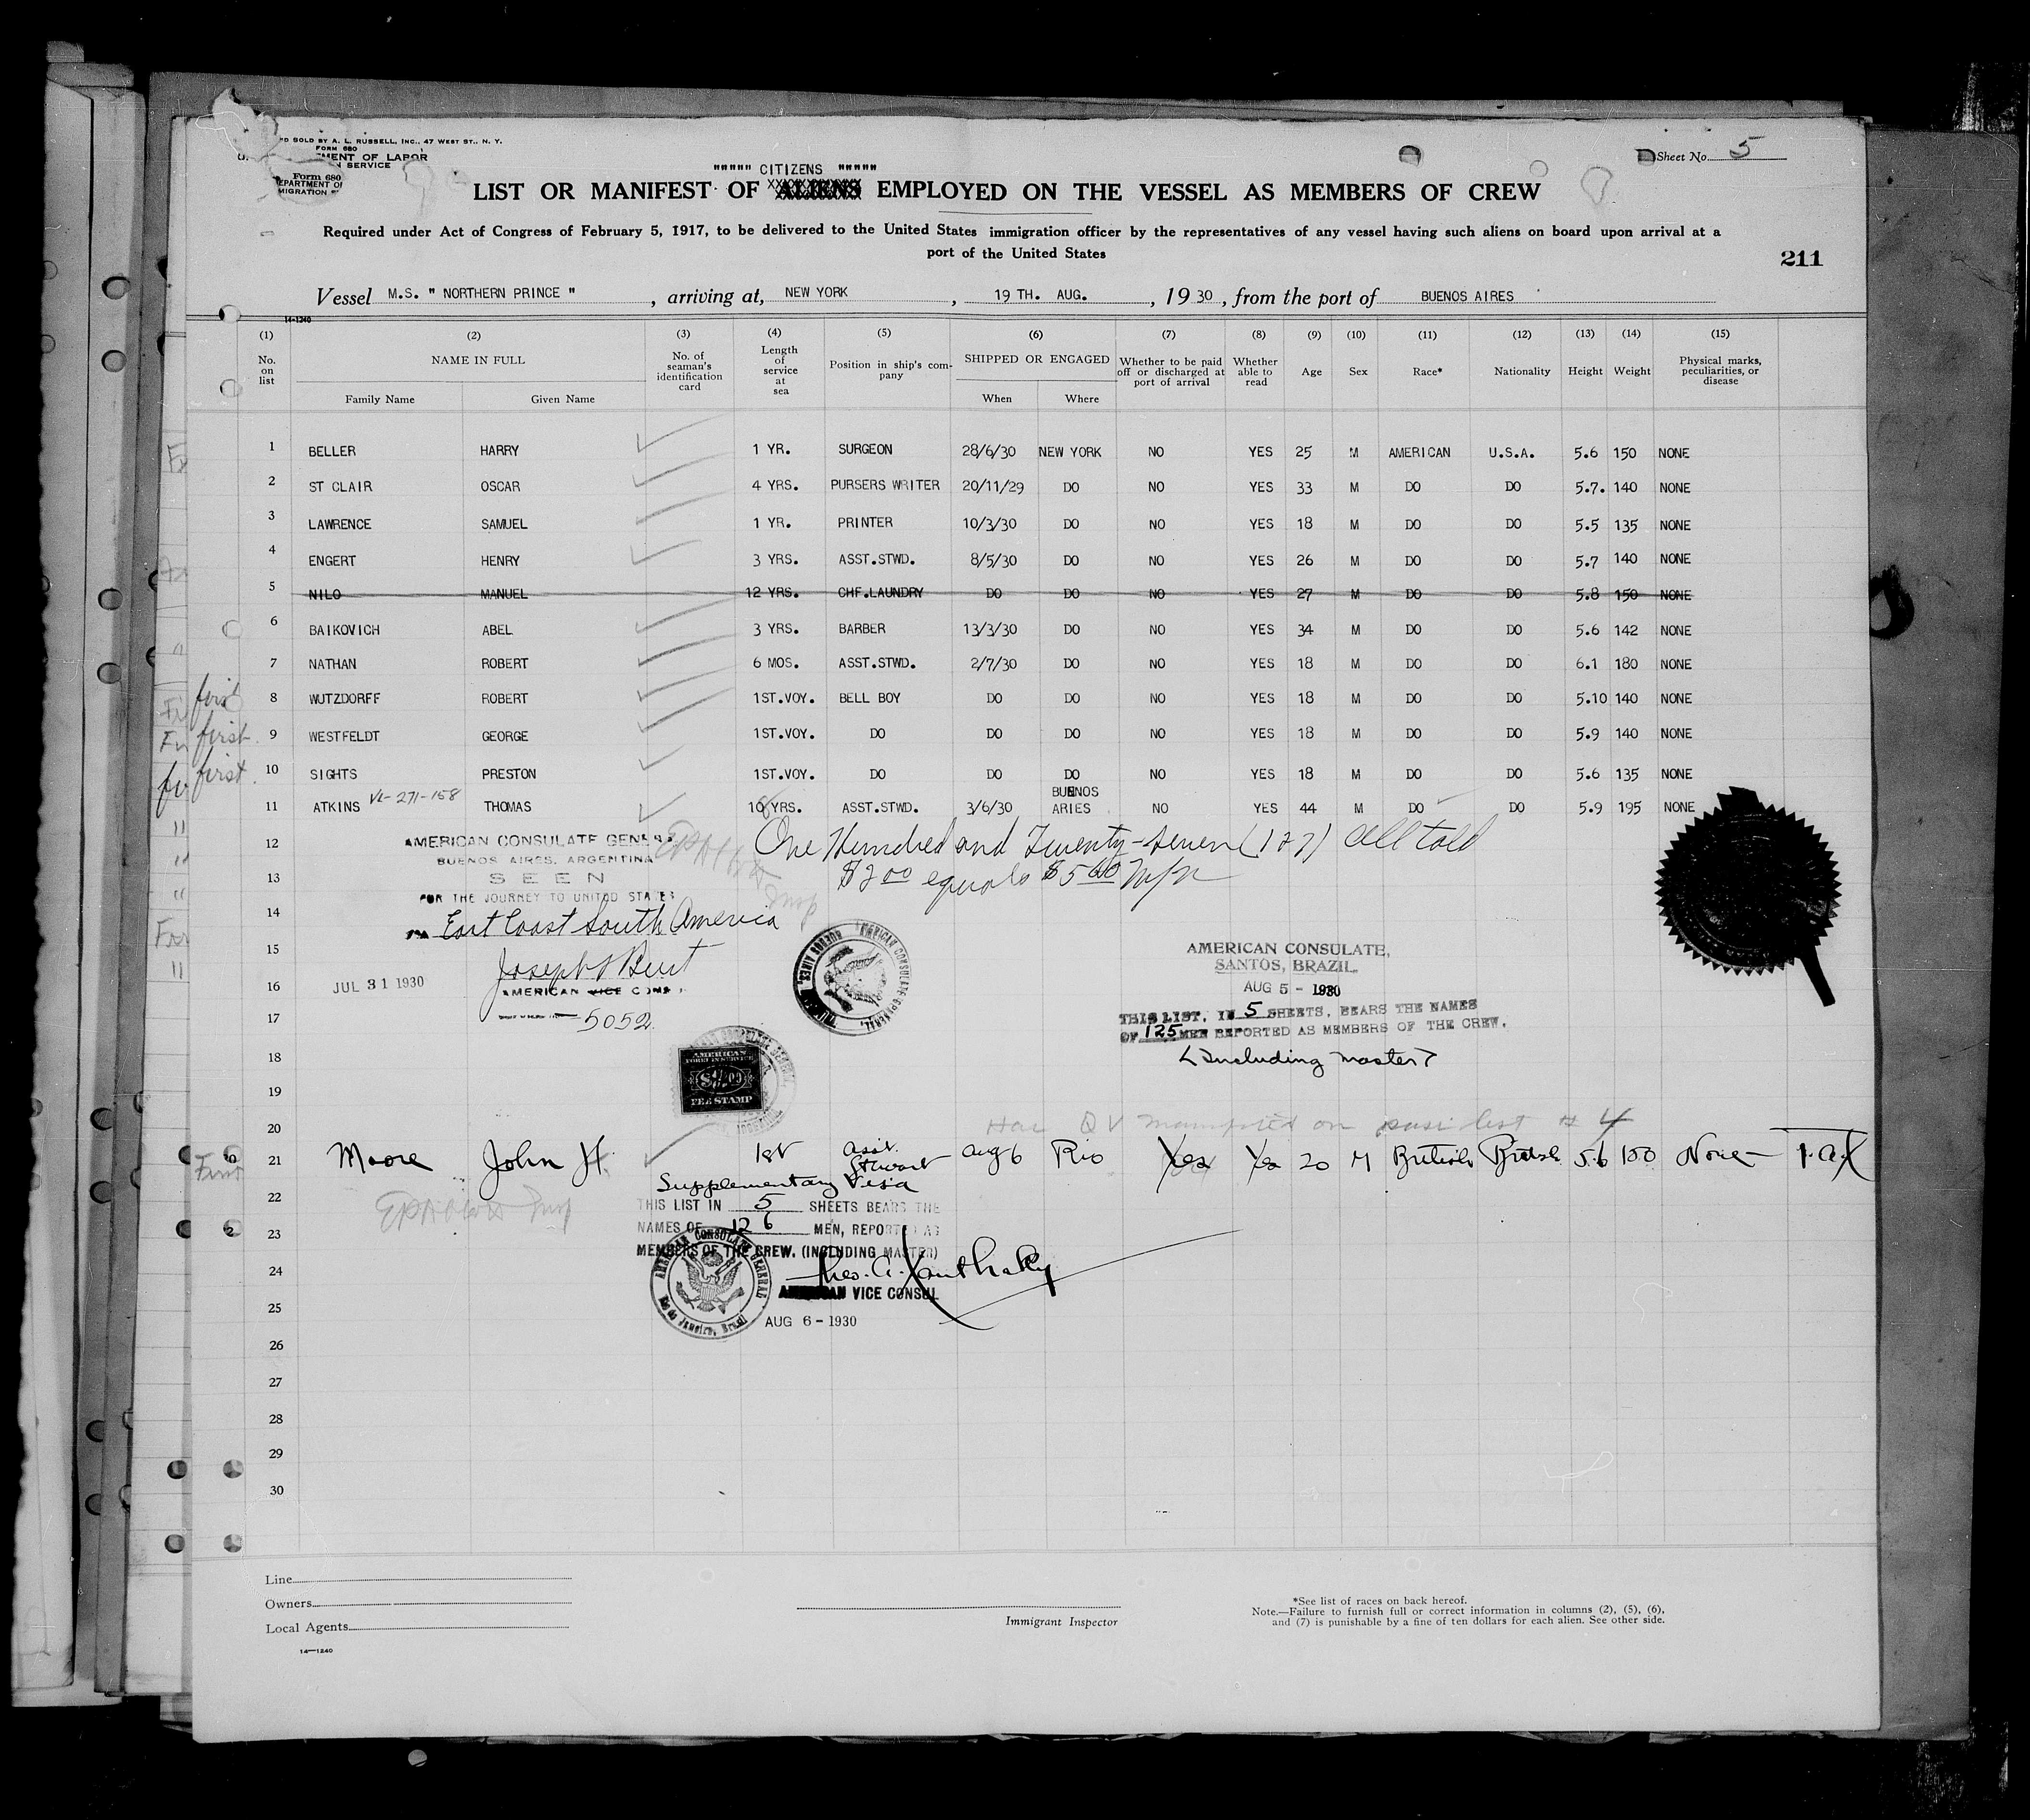 D SOLD BY A. L. RUSSELL, INC., 47 WEST ST., N. Y.
FORM 680
MENT OF LABOR
N SERVICE
Form 680
EPARTMENT OF
MIGRATION
Sheet No. 5
""""" CITIZENS """""
LIST OR MANIFEST OF ALIENS EMPLOYED ON THE VESSEL AS MEMBERS OF CREW
Required under Act of Congress of February 5, 1917, to be delivered to the United States immigration officer by the representatives of any vessel having such aliens on board upon arrival at a
port of the United States
211
Vessel M.S. " NORTHERN PRINCE " , arriving at, NEW YORK , 19 TH. AUG. , 1930 , from the port of BUENOS AIRES
14-1240
(1) (2) (3) (4) (5) (6) (7) (8) (9) (10) (11) (12) (13) (14) (15)
No. on list NAME IN FULL No. of seaman's identification card Length of service at sea Position in ship's company SHIPPED OR ENGAGED Whether to be paid off or discharged at port of arrival Whether able to read Age Sex Race* Nationality Height Weight Physical marks, peculiarities, or disease
Family Name Given Name When Where
1 BELLER HARRY 1 YR. SURGEON 28/6/30 NEW YORK NO YES 25 M AMERICAN U.S.A. 5.6 150 NONE
2 ST CLAIR OSCAR 4 YRS. PURSERS WRITER 20/11/29 DO NO YES 33 M DO DO 5.7. 140 NONE
3 LAWRENCE SAMUEL 1 YR. PRINTER 10/3/30 DO NO YES 18 M DO DO 5.5 135 NONE
4 ENGERT HENRY 3 YRS. ASST.STWD. 8/5/30 DO NO YES 26 M DO DO 5.7 140 NONE
5 NILO MANUEL 12 YRS. CHF.LAUNDRY DO DO NO YES 27 M DO DO 5.8 150 NONE
6 BAIKOVICH ABEL 3 YRS. BARBER 13/3/30 DO NO YES 34 M DO DO 5.6 142 NONE
7 NATHAN ROBERT 6 MOS. ASST.STWD. 2/7/30 DO NO YES 18 M DO DO 6.1 180 NONE
first 8 WUTZDORFF ROBERT 1ST.VOY. BELL BOY DO DO NO YES 18 M DO DO 5.10 140 NONE
first 9 WESTFELDT GEORGE 1ST.VOY. DO DO DO NO YES 18 M DO DO 5.9 140 NONE
first 10 SIGHTS PRESTON 1ST.VOY. DO DO DO NO YES 18 M DO DO 5.6 135 NONE
11 ATKINS VL-271-158 THOMAS 10 YRS. ASST.STWD. 3/6/30 BUENOS ARIES NO YES 44 M DO DO 5.9 195 NONE
12 One Hundred and Twenty-seven (127) all told
AMERICAN CONSULATE GENERAL
BUENOS AIRES, ARGENTINA
13 $2.00 equals $5.60 m/n
SEEN
FOR THE JOURNEY TO UNITED STATES
14
East Coast South America
15
Joseph Burt
AMERICAN CONSULATE,
SANTOS, BRAZIL.
16 JUL 31 1930
AMERICAN VICE CONS
AUG 5 - 1930
17 5052
THIS LIST, IN 5 SHEETS, BEARS THE NAMES
OF 125 MEN REPORTED AS MEMBERS OF THE CREW.
(Including master)
18
AMERICAN
FOREIGN SERVICE
$2.00
FEE STAMP
19
20
21 Moore John H. 1st Asst. Steward Aug 6 Rio Yes Yes 20 M British British 5.6 150 None
Supplementary Visa
22 THIS LIST IN 5 SHEETS BEARS THE
23 NAMES OF 126 MEN, REPORTED AS
MEMBERS OF THE CREW. (INCLUDING MASTER)
24 AMERICAN CONSULATE GENERAL
Rio de Janeiro, Brazil
Thos. A. Xanthaky
25 AMERICAN VICE CONSUL
AUG 6 - 1930
26
27
28
29
30
Line
Owners
Local Agents
14-1240
Immigrant Inspector
*See list of races on back hereof.
Note.—Failure to furnish full or correct information in columns (2), (5), (6),
and (7) is punishable by a fine of ten dollars for each alien. See other side.